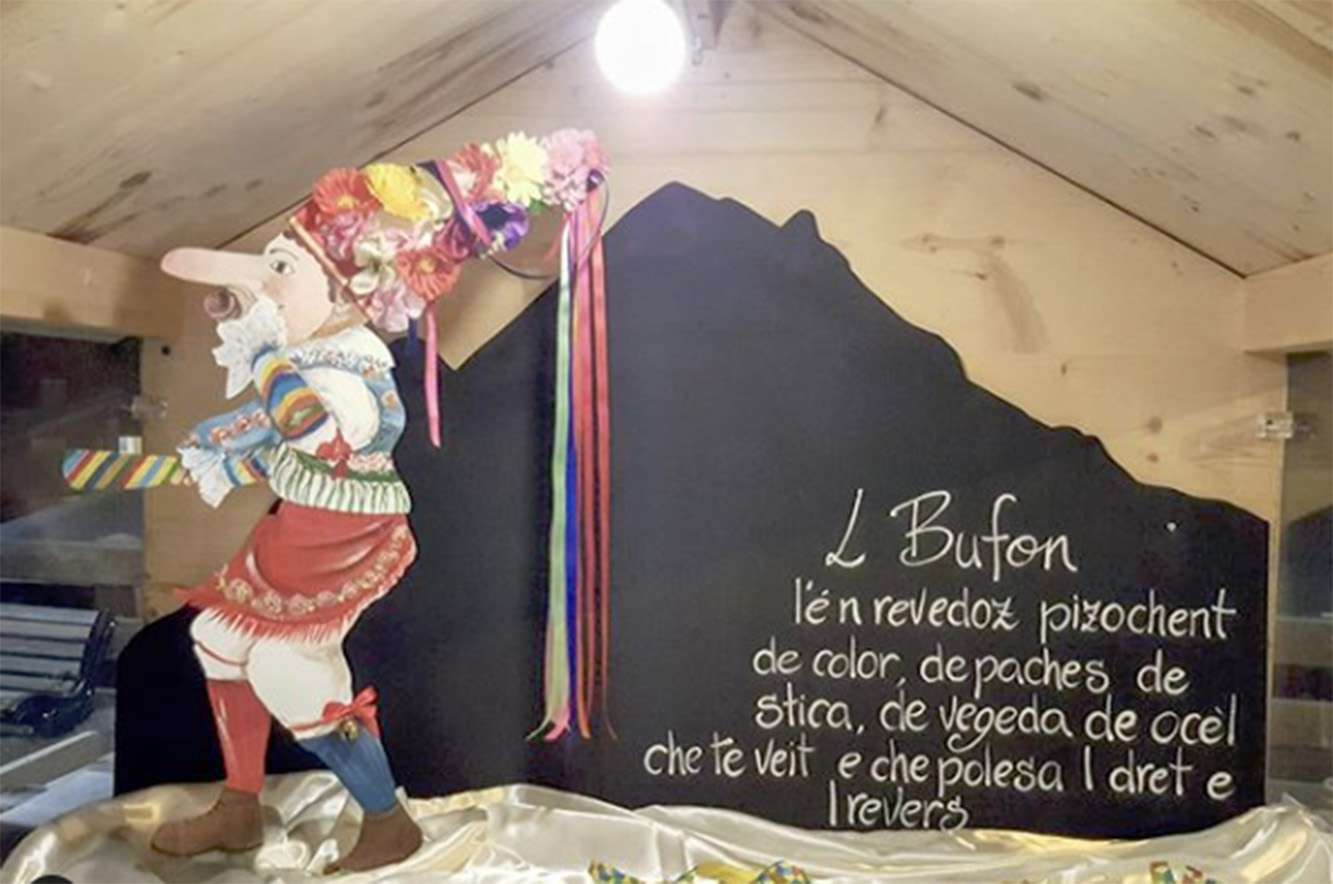 L Bufon
l'é n revedoz pizochent
de color, de paches de
stica, de vegeda de ocèl
che te veit e che polesa l dret e
l revers